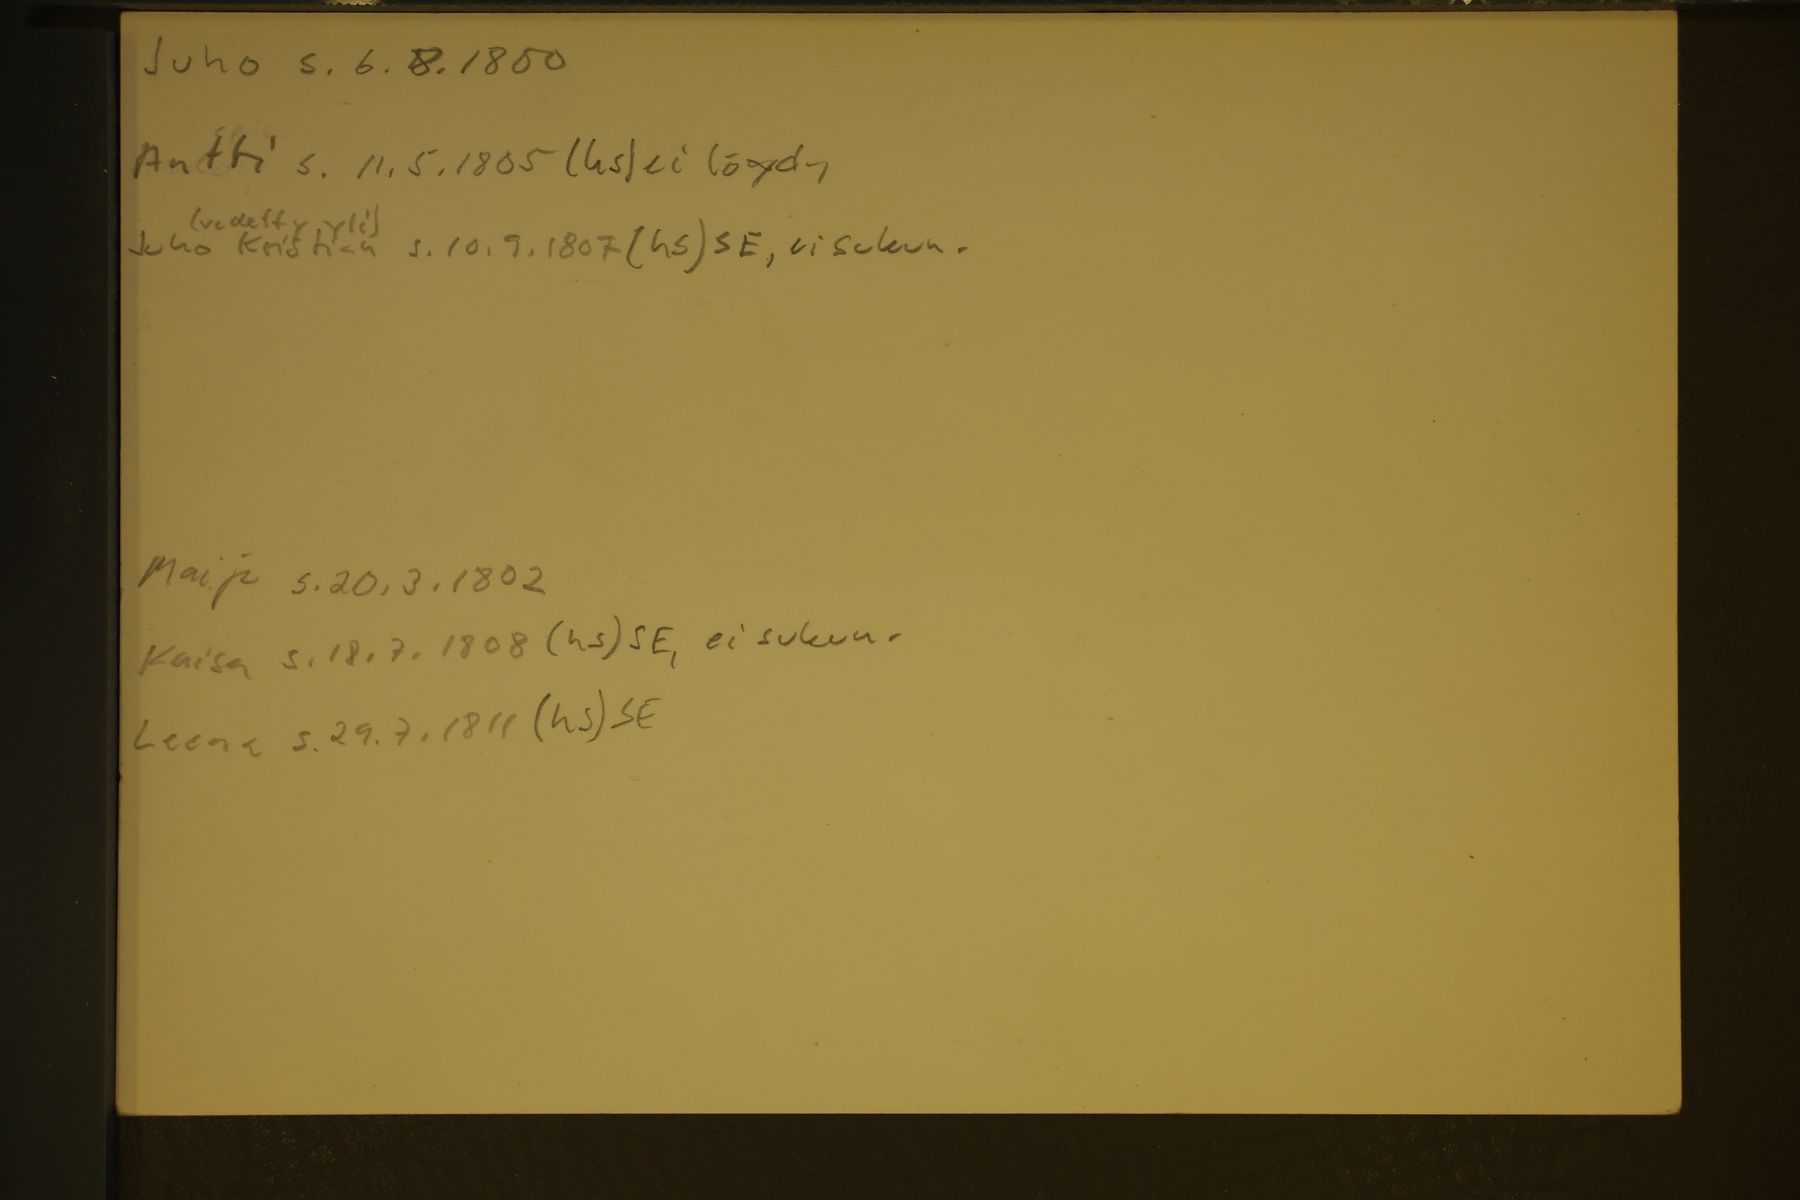 Juho s. 6. 8. 1800
Antti s. 11.5.1805 (hs) ei löydy
(vedetty yli)
Juho Kristian s. 10.9.1807 (hs) SE, ei sukun.
Maija s. 20.3.1802
Kaisa s. 18.7.1808 (hs) SE, ei sukun.
Leena s. 29.7.1811 (hs) SE